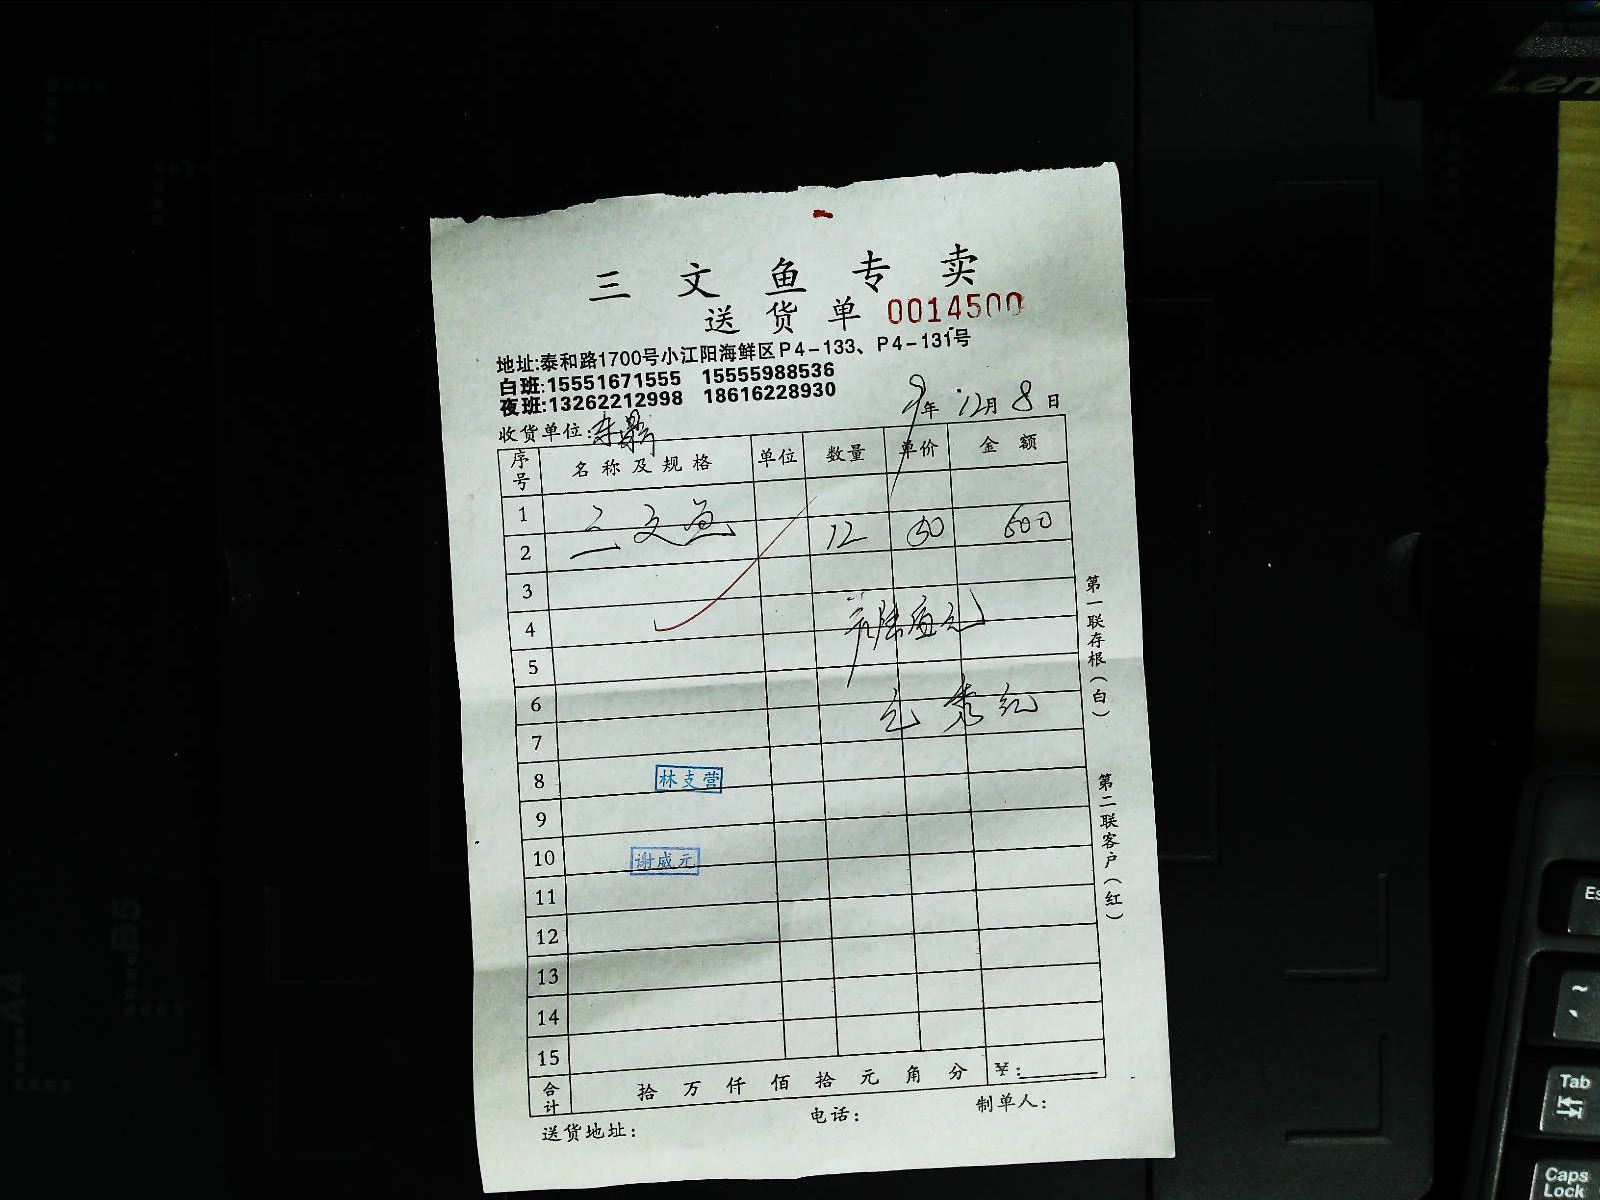 三文鱼专卖
送货单 0014500
地址:泰和路1700号小江阳海鲜区P4-133、P4-131号
白班:15551671555 15555988536
夜班:13262212998 18616228930
9年 12月8日
收货单位:
序号 名称及规格 单位 数量 单价 金额
1
2 三文鱼 12 50 600
3
4
5
6
7
8 林支营
9
10 谢威元
11
12
13
14
15
合计 拾万仟佰拾元角分 ¥:
送货地址: 电话: 制单人:
第一联存根(白)
第二联客户(红)
Lenovo
A4
B5
Esc
~
Tab
Caps Lock